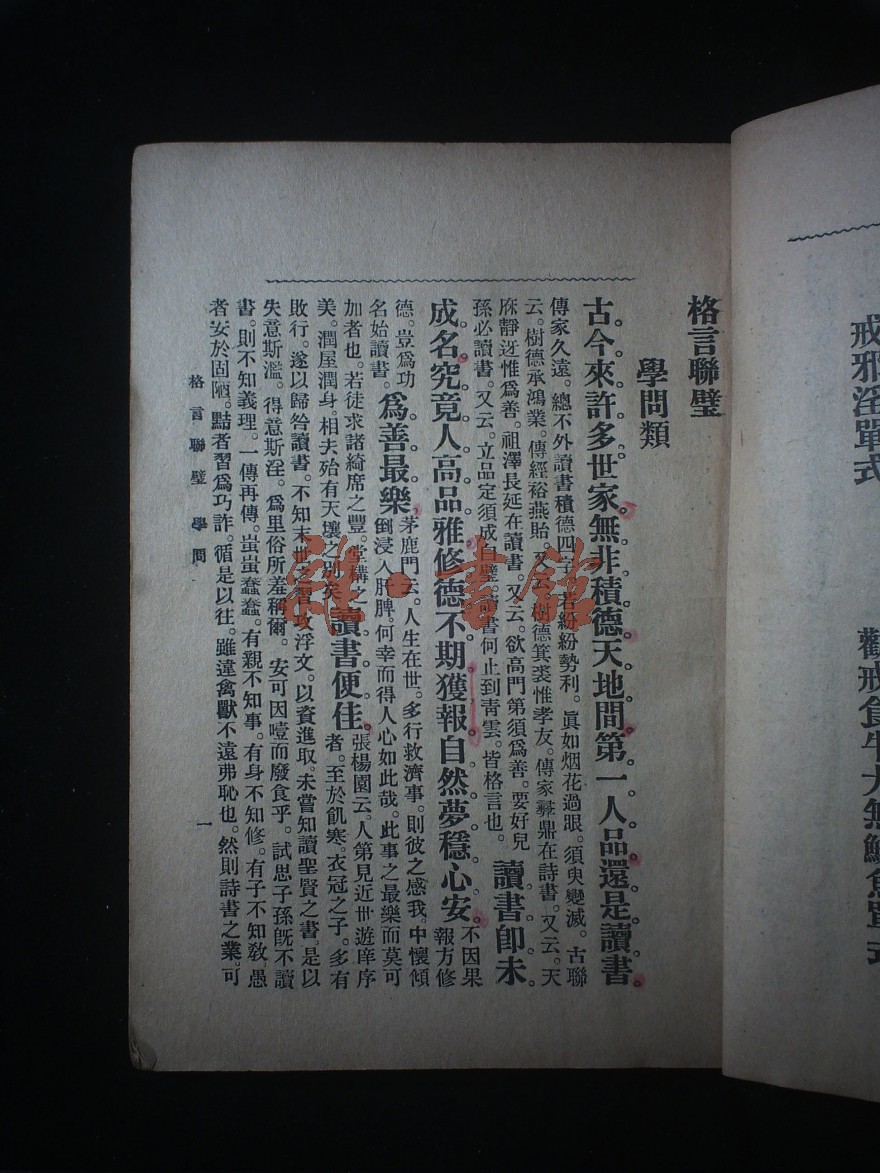 戒邪淫單式
格言聯璧
學問類
古今來許多世家。無非積德。天地間第一人品。還是讀書。
傳家久遠。總不外讀書積德四字。若紛紛勢利。眞如烟花過眼。須臾變滅。古聯
云。樹德承鴻業。傳經裕燕貽。又云。樹德箕裘惟孝友。傳家彝鼎在詩書。又云。天
庥靜迓惟爲善。祖澤長延在讀書。又云。欲高門第須爲善。要好兒
孫必讀書。又云。立品定須成白璧。讀書何止到青雲。皆格言也。
讀書卽未
成名。究竟人高品雅。修德不期獲報。自然夢穩心安。
不因果
報方修
德。豈爲功
名始讀書。
爲善最樂
茅鹿門云。人生在世。多行救濟事。則彼之感我。中懷傾
倒浸入肝脾。何幸而得人心如此哉。此事之最樂而莫可
加者也。若徒求諸綺席之豐。堂構之
美。潤屋潤身。相夫殆有天壤之別矣。
讀書便佳。
張楊園云。人第見近世遊庠序
者。至於飢寒。衣冠之子。多有
敗行。遂以歸咎讀書。不知末世之習。攻浮文。以資進取。未嘗知讀聖賢之書。是以
失意斯濫。得意斯淫。爲里俗所羞稱爾。安可因噎而廢食乎。試思子孫旣不讀
書。則不知義理。一傳再傳。蚩蚩蠢蠢。有親不知事。有身不知修。有子不知敎。愚
者安於固陋。黠者習爲巧詐。循是以往。雖違禽獸不遠弗恥也。然則詩書之業。可
格言聯璧 學問 一